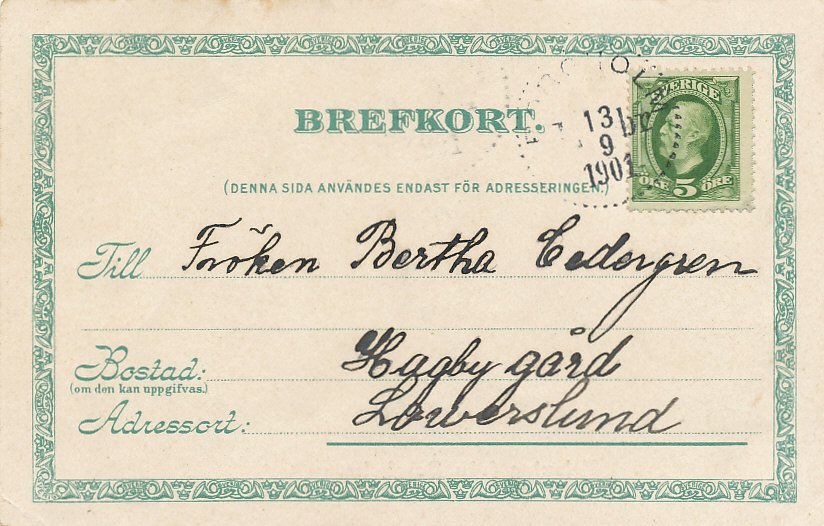 BREFKORT.
SVERIGE
13
9
1901
ÖRE 5 ÖRE
(DENNA SIDA ANVÄNDES ENDAST FÖR ADRESSERINGEN.)
Till Fröken Bertha Cedergren
Bostad: Hagby gård
(om den kan uppgifvas.)
Adressort: Löwerslund